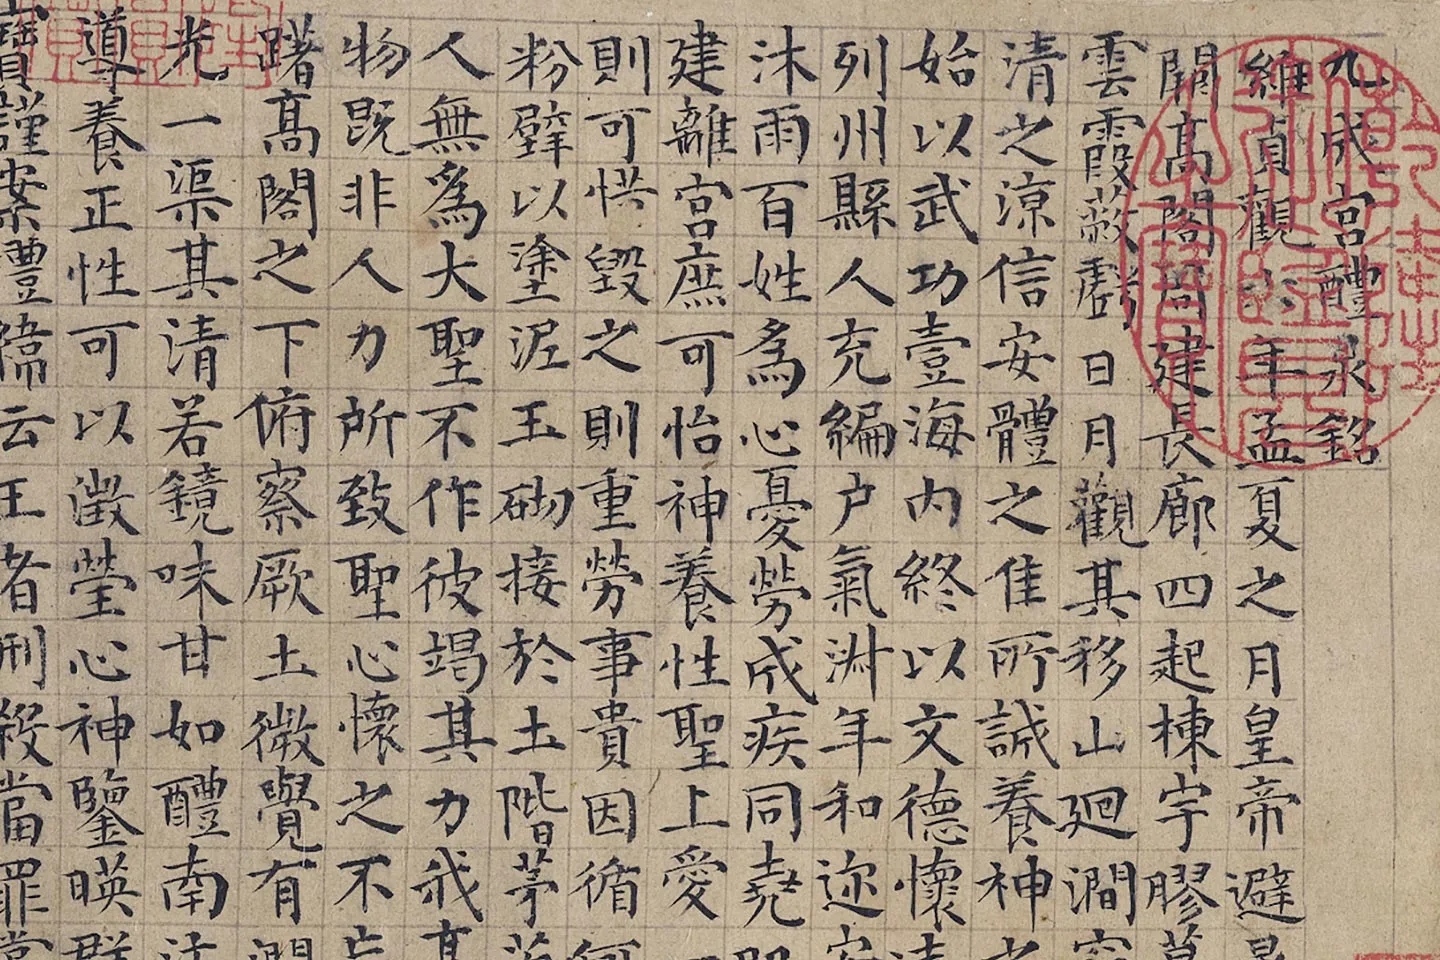 九成宮醴泉銘
維貞觀六年孟夏之月皇帝避
闕高閣周建長廊四起棟宇膠葛
雲霞蔽虧日月觀其移山廻澗
清之涼信安體之佳所誠養神之
始以武功壹海內終以文德懷
列州縣人充編戶氣淑年和迩安
沐雨百姓為心憂勞成疾同堯
建離宮庶可怡神養性聖上愛
則可惜毀之則重勞事貴因循
粉壁以塗泥玉砌接於土階茅
人無為大聖不作彼竭其力我
物既非人力所致聖心懷之不
躇高閣之下俯察厥土微覺有
光一渠其清若鏡味甘如醴南注
導養正性可以澂瑩心神鑒暎群
實謹案禮緯云王者刑殺當罪